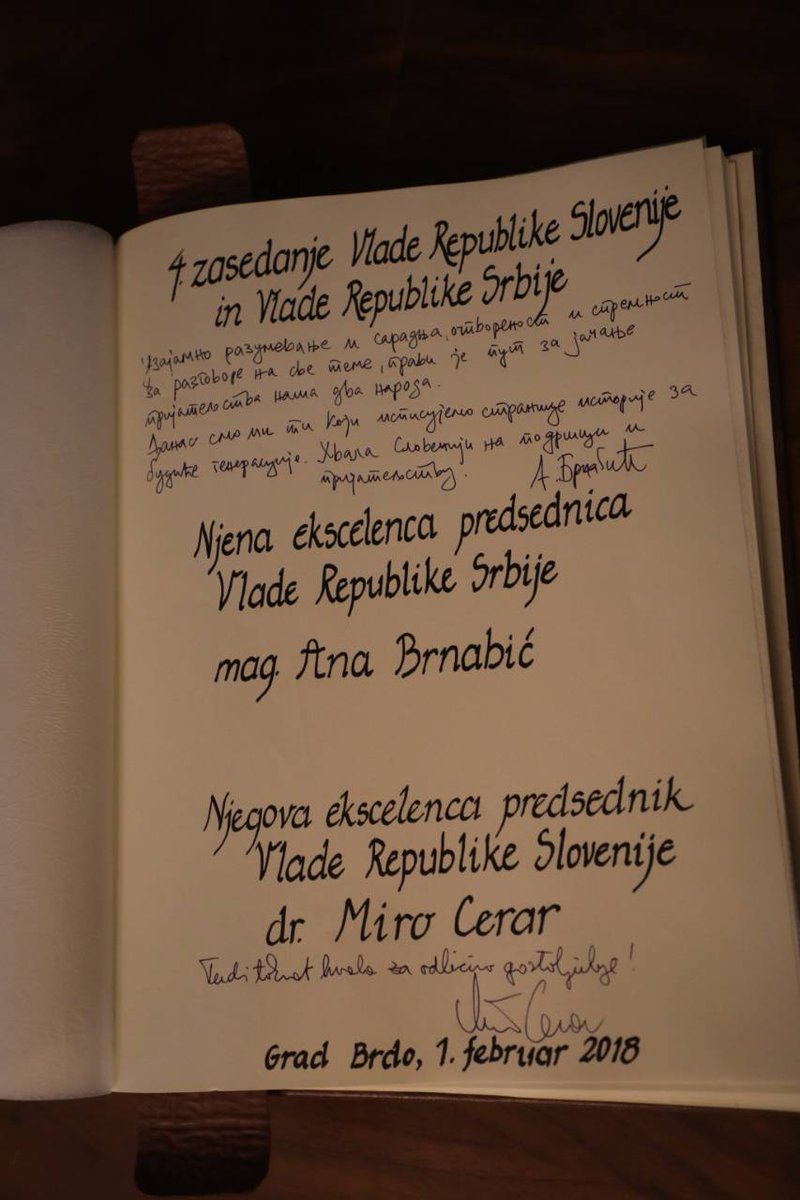 4. zasedanje Vlade Republike Slovenije
in Vlade Republike Srbije
Узајамно разумевање и сарадња, отвореност и спремност
за разговоре на све теме, прави је пут за јачање
пријатељства наша два народа.
Данас смо ми ти који исписујемо странице историје за
будуће генерације. Хвала Словенији на подршци и
пријатељству. А. Брнабић
Njena ekscelenca predsednica
Vlade Republike Srbije
mag. Ana Brnabić
Njegova ekscelenca predsednik
Vlade Republike Slovenije
dr. Miro Cerar
Tudi tokrat hvala za odlično gostoljubje!
Miro Cerar
Grad Brdo, 1. februar 2018